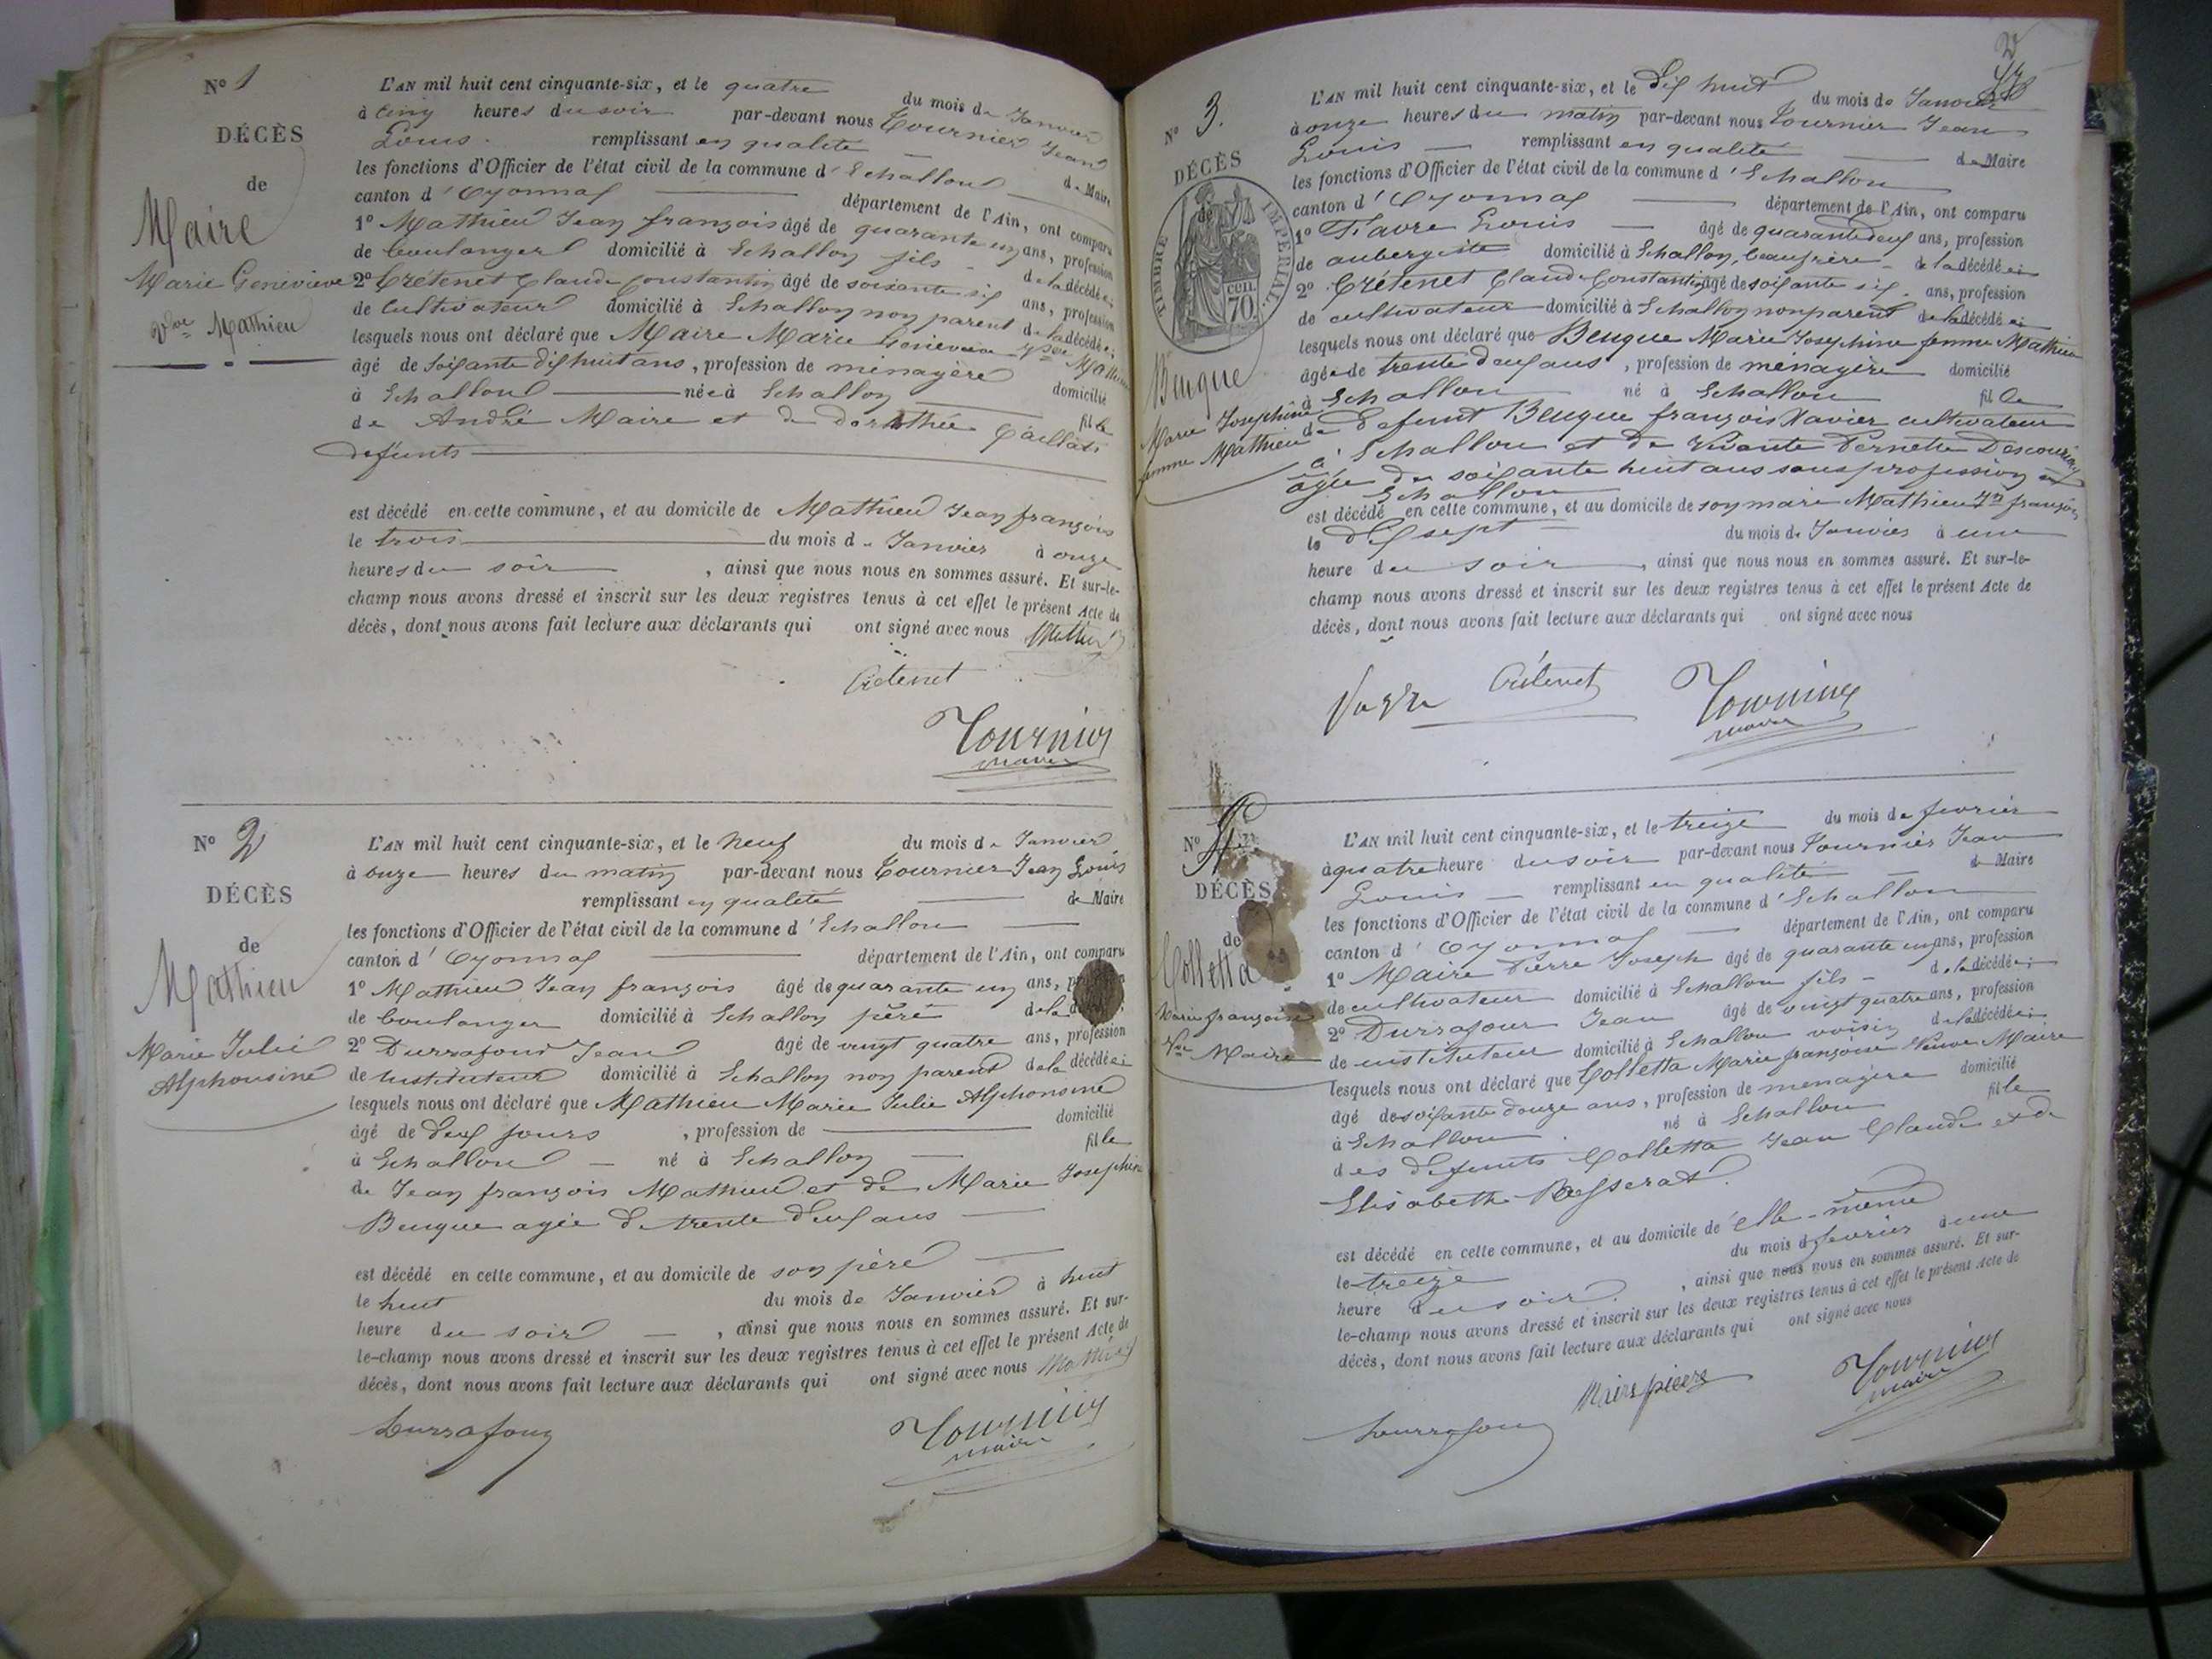 N° 1
DÉCÈS
de
Maire
Marie Genevieve
Vve Mathieu
L'AN mil huit cent cinquante-six, et le quatre du mois de Janvier
à cinq heures du soir par-devant nous Tournier Jean
Louis remplissant en qualité de Maire
les fonctions d'Officier de l'état civil de la commune d'Echallon
canton d'Oyonnax département de l'Ain, ont comparu
1° Mathieu Jean françois âgé de quarante un ans, profession
de boulanger domicilié à Echallon fils de la décédée
2° Crétenet Claude Constantin âgé de soixante six ans, profession
de cultivateur domicilié à Echallon non parent de la décédée
lesquels nous ont déclaré que Maire Marie Genevieve Vve Mathieu
âgé de soixante dix huit ans, profession de ménagère domicilié
à Echallon née à Echallon fille
de André Maire et de Dorothée
défunts
est décédé en cette commune, et au domicile de Mathieu Jean françois
le trois du mois de Janvier à onze
heures du soir, ainsi que nous nous en sommes assuré. Et sur-le-
champ nous avons dressé et inscrit sur les deux registres tenus à cet effet le présent Acte de
décès, dont nous avons fait lecture aux déclarants qui ont signé avec nous Mathieu
Crétenet
Tournier
maire
N° 2
DÉCÈS
de
Mathieu
Marie Julie
Alphonsine
L'AN mil huit cent cinquante-six, et le Neuf du mois de Janvier
à onze heures du matin par-devant nous Tournier Jean Louis
remplissant en qualité de Maire
les fonctions d'Officier de l'état civil de la commune d'Echallon
canton d'Oyonnax département de l'Ain, ont comparu
1° Mathieu Jean françois âgé de quarante un ans,
de boulanger domicilié à Echallon père de la
2° Durrafour Jean âgé de vingt quatre ans, profession
de instituteur domicilié à Echallon non parent de la décédée
lesquels nous ont déclaré que Mathieu Marie Julie Alphonsine
âgé de deux jours, profession de domicilié
à Echallon né à Echallon fille
de Jean françois Mathieu et de Marie Josephine
Beuque agée de trente deux ans
est décédé en cette commune, et au domicile de son père
le huit du mois de Janvier à huit
heure du soir, ainsi que nous nous en sommes assuré. Et sur-
le-champ nous avons dressé et inscrit sur les deux registres tenus à cet effet le présent Acte de
décès, dont nous avons fait lecture aux déclarants qui ont signé avec nous Mathieu
Durrafour
Tournier
maire
2
N° 3.
DÉCÈS
de
TIMBRE IMPÉRIAL
70 CEN.
Beuque
Marie Josephine
femme Mathieu
L'AN mil huit cent cinquante-six, et le dix huit du mois de Janvier
à onze heures du matin par-devant nous Tournier Jean
Louis remplissant en qualité de Maire
les fonctions d'Officier de l'état civil de la commune d'Echallon
canton d'Oyonnax département de l'Ain, ont comparu
1° Favre Louis âgé de quarante deux ans, profession
de aubergiste domicilié à Echallon, beaufrère de la décédée
2° Crétenet Claude Constantin âgé de soixante six ans, profession
de cultivateur domicilié à Echallon non parent de la décédée
lesquels nous ont déclaré que Beuque Marie Josephine femme Mathieu
âgée de trente deux ans, profession de ménagère domicilié
à Echallon né à Echallon fille
de défunt Beuque françois Xavier cultivateur
à Echallon et de vivante Pernette
agée de soixante huit ans sans profession
Echallon
est décédé en cette commune, et au domicile de son mari Mathieu Jn françois
le dix sept du mois de Janvier à une
heure du soir, ainsi que nous nous en sommes assuré. Et sur-le-
champ nous avons dressé et inscrit sur les deux registres tenus à cet effet le présent Acte de
décès, dont nous avons fait lecture aux déclarants qui ont signé avec nous
Favre Crétenet Tournier
maire
N° 4
DÉCÈS
de
Colletta
Marie françoise
Vve Maire
L'AN mil huit cent cinquante-six, et le treize du mois de fevrier
à quatre heure du soir par-devant nous Tournier Jean
Louis remplissant en qualité de Maire
les fonctions d'Officier de l'état civil de la commune d'Echallon
canton d'Oyonnax département de l'Ain, ont comparu
1° Maire Pierre Joseph âgé de quarante un ans, profession
de cultivateur domicilié à Echallon fils de la décédée
2° Durrafour Jean âgé de vingt quatre ans, profession
de instituteur domicilié à Echallon voisin de la décédée
lesquels nous ont déclaré que Colletta Marie françoise Veuve Maire
âgé de soixante douze ans, profession de menagère domicilié
à Echallon né à Echallon fille
des defunts Colletta Jean Claude et de
Elisabethe
est décédé en cette commune, et au domicile de elle-même
le treize du mois de fevrier à une
heure du soir, ainsi que nous nous en sommes assuré. Et sur-
le-champ nous avons dressé et inscrit sur les deux registres tenus à cet effet le présent Acte de
décès, dont nous avons fait lecture aux déclarants qui ont signé avec nous
Maire pierre Tournier
maire
Durrafour